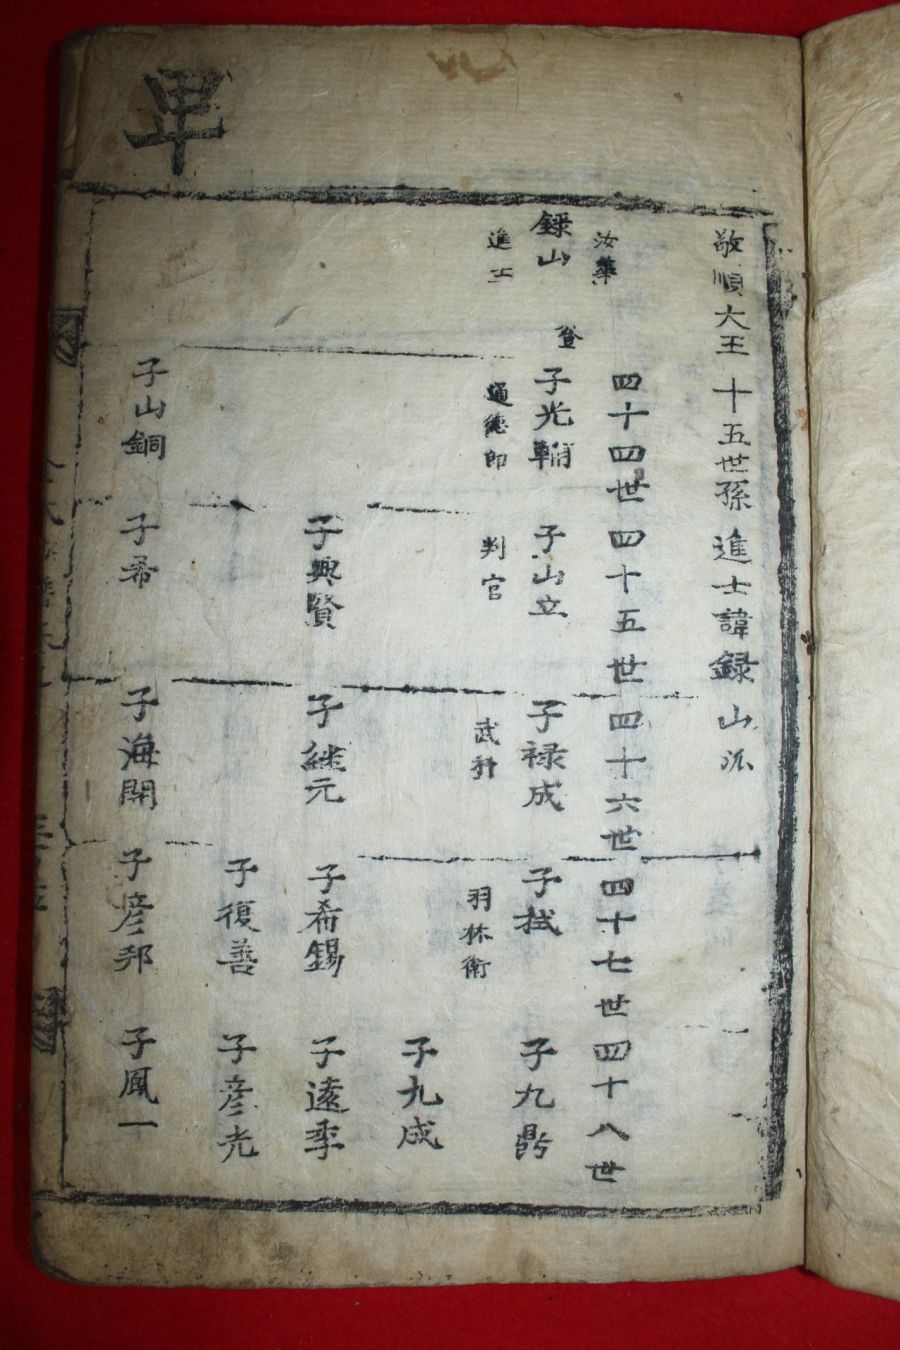 卑
敬順大王十五世孫進士諱録山派
四十四世 四十五世 四十六世 四十七世 四十八世
汝華
録山
進士
子光輔
通德郎
子山立
判官
子禄成
武科
子栻
羽林衛
子九鼎
子九成
子興賢
子継元
子希錫
子遠季
子復善
子彦光
子山銅
子希
子海開
子彦邦
子鳳一